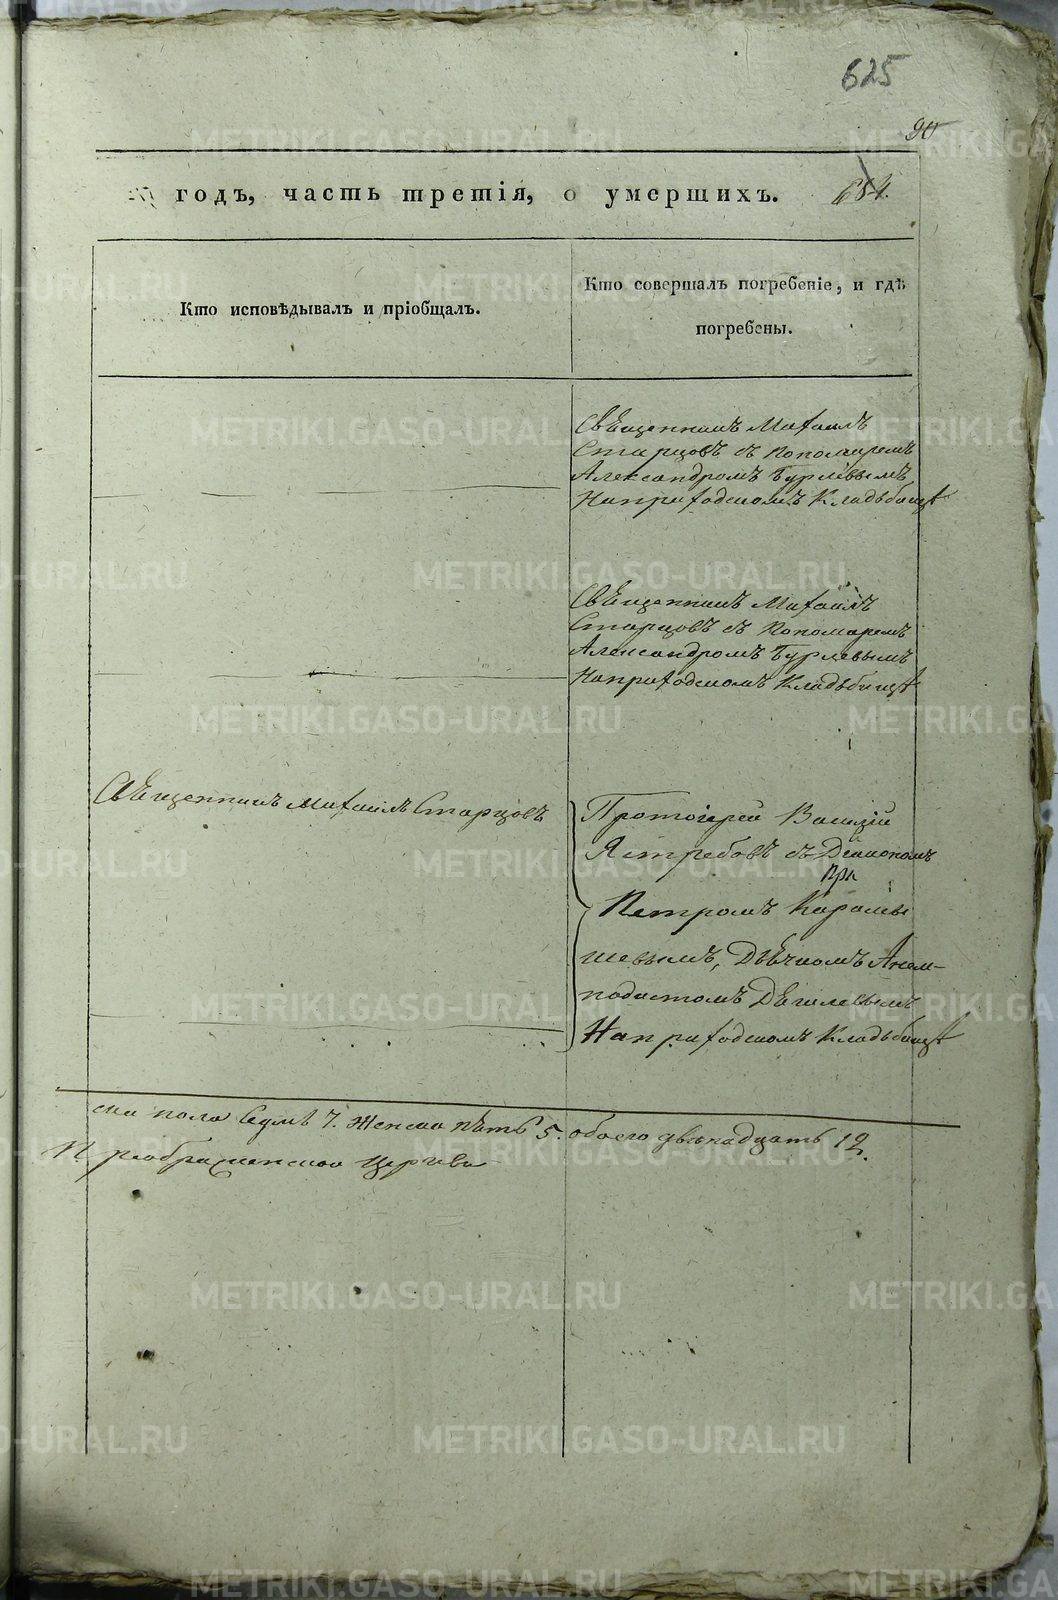 625
90
годъ, часть третія, о умершихъ. 654.
Кто исповѣдывалъ и пріобщалъ.
Кто совершалъ погребеніе, и гдѣ
погребены.
Священникъ Михаилъ
Старцовъ съ Пономаремъ
Александромъ Бурлевымъ
На приходскомъ Кладьбищѣ
Священникъ Михаилъ
Старцовъ съ Пономаремъ
Александромъ Бурлевымъ
На приходскомъ Кладьбищѣ
Свѣщенникъ Михаилъ Старцовъ
Протоіерей Василій
Ястребовъ съ Діакономъ
при
Петромъ Карамы
шевымъ, Дьячкомъ Анем-
подистомъ
На приходскомъ Кладьбищѣ
ска пола Седмь 7. Женска пять 5. обоего двенадцать 12.
Преображенской Церкви
METRIKI.GASO-URAL.RU